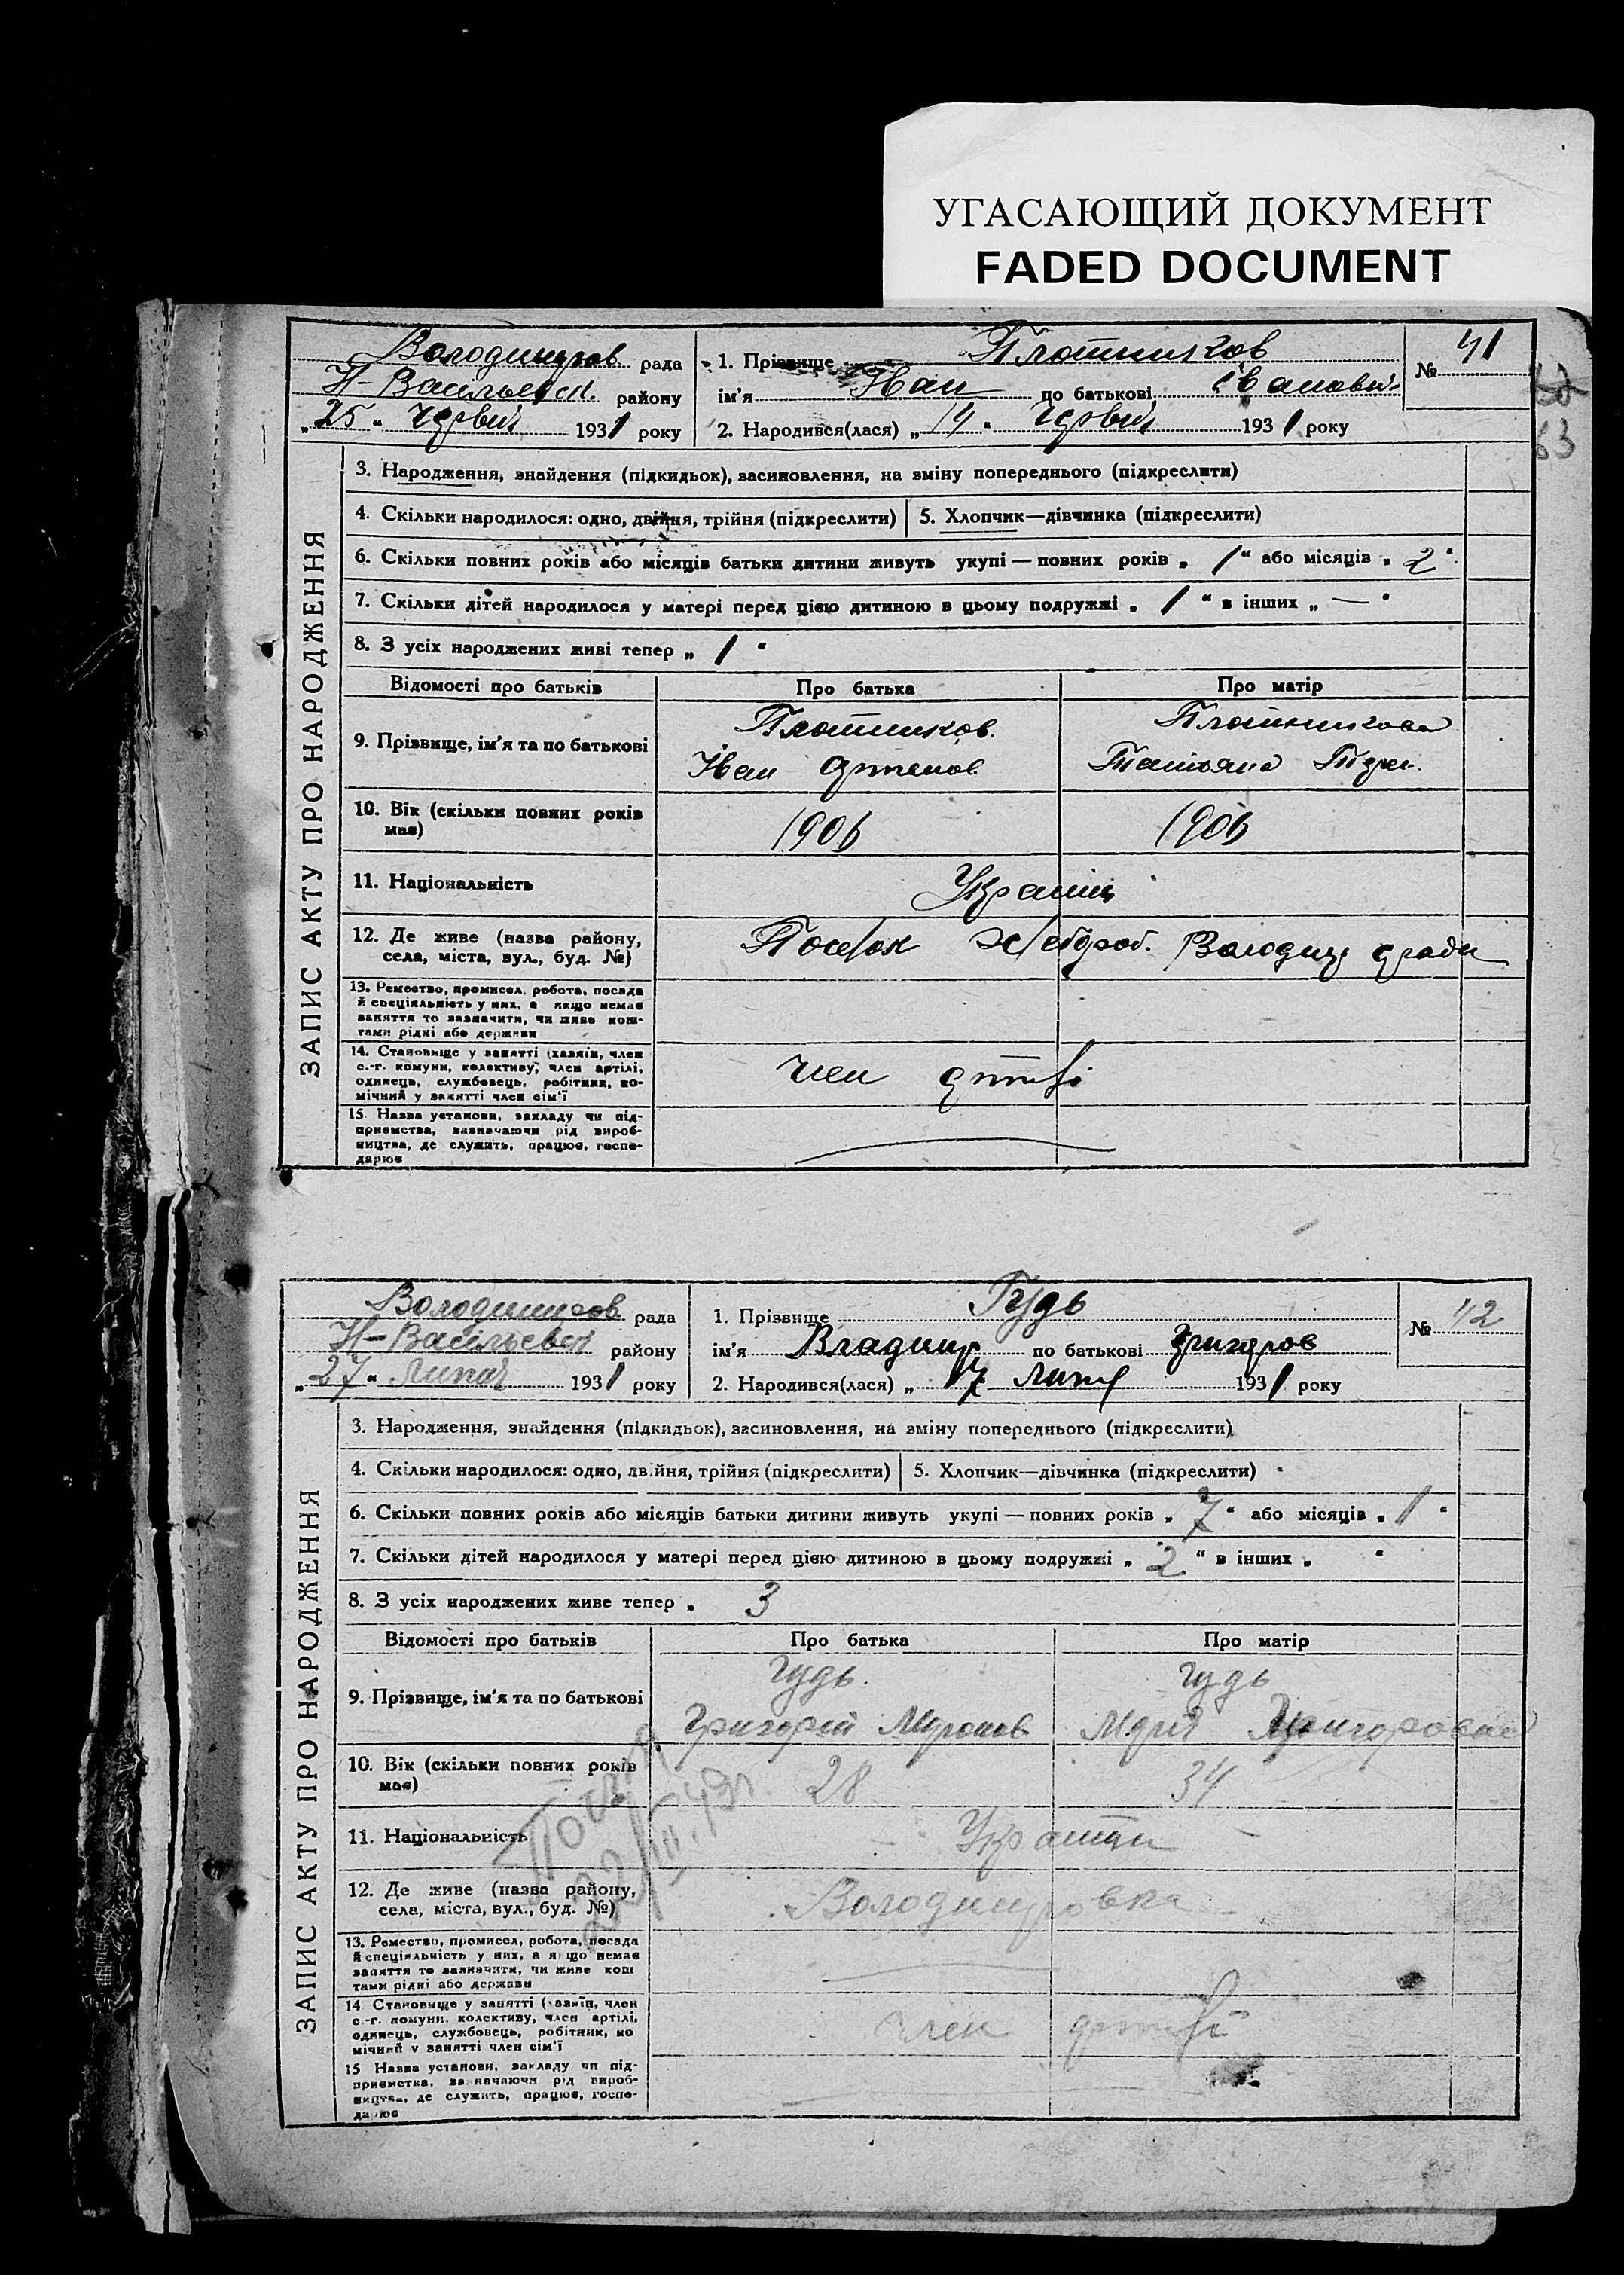 УГАСАЮЩИЙ ДОКУМЕНТ
FADED DOCUMENT
Володимиров рада
Н-Васильевск. району
„25“ Червня 1931 року
1. Прізвище Плотников
ім'я Иван по батькові Иванович
2. Народився(лася) „14“ Червня 1931 року
№ 41
63
ЗАПИС АКТУ ПРО НАРОДЖЕННЯ
3. Народження, знайдення (підкидьок), засиновлення, на зміну попереднього (підкреслити)
4. Скільки народилося: одно, двійня, трійня (підкреслити)
5. Хлопчик—дівчинка (підкреслити)
6. Скільки повних років або місяців батьки дитини живуть укупі — повних років „ 1 “ або місяців „ 2 “
7. Скільки дітей народилося у матері перед цією дитиною в цьому подружжі „ 1 “ в інших „ — “
8. З усіх народжених живі тепер „ 1 “
Відомості про батьків
Про батька
Про матір
9. Прізвище, ім'я та по батькові
Плотников
Иван Артемов.
Плотникова
Татьяна
10. Вік (скільки повних років має)
1906
1906
11. Національність
Украинц
12. Де живе (назва району, села, міста, вул., буд. №)
Володимир ради
13. Ремество, промисел, робота, посада й спеціяльність у них, а якщо немає заняття то зазначити, чи живе коштами рідні або держави
14. Становище у занятті (хазяїн, член с.-г. комуни, колективу, член артілі, одинець, службовець, робітник, помічний у занятті член сім'ї
член артілі
15. Назва установи, закладу чи підприємства, зазначаючи рід виробництва, де служить, працює, господарює
Володимиров рада
Н-Васильевск району
„27“ Липня 1931 року
1. Прізвище Гудь
ім'я Владимир по батькові Григоров
2. Народився(лася) „ 17 Липня 1931 року
№ 42
ЗАПИС АКТУ ПРО НАРОДЖЕННЯ
3. Народження, знайдення (підкидьок), засиновлення, на зміну попереднього (підкреслити)
4. Скільки народилося: одно, двійня, трійня (підкреслити)
5. Хлопчик—дівчинка (підкреслити)
6. Скільки повних років або місяців батьки дитини живуть укупі — повних років „ 7 “ або місяців „ 1 “
7. Скільки дітей народилося у матері перед цією дитиною в цьому подружжі „ 2 “ в інших „ “
8. З усіх народжених живе тепер „ 3
Відомості про батьків
Про батька
Про матір
9. Прізвище, ім'я та по батькові
Гудь.
Григорий Миронов
Гудь
Мария Григоровна
10. Вік (скільки повних років має)
28
34
11. Національність
Украинци
12. Де живе (назва району, села, міста, вул., буд. №)
Володимировка
13. Ремество, промисел, робота, посада й спеціяльність у них, а якщо немає заняття то зазначити, чи живе коштами рідні або держави
14. Становище у занятті (хазяїн, член с.-г. комуни, колективу, член артілі, одинець, службовець, робітник, помічний у занятті член сім'ї
член артілі
15 Назва установи, закладу чи підприємства, зазначаючи рід виробництва, де служить, працює, господарює